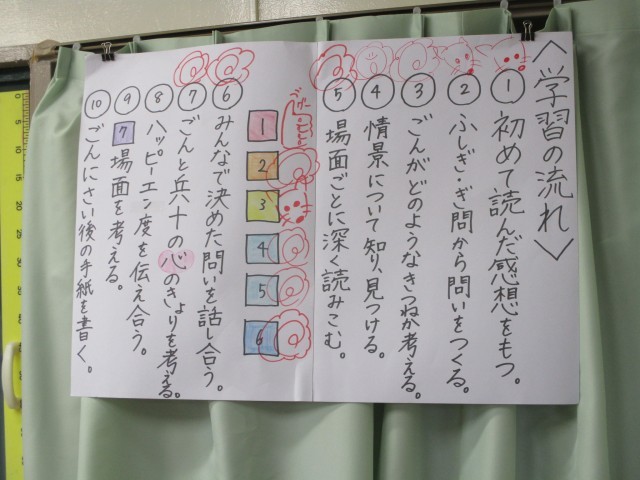 ＜学習の流れ＞
① 初めて読んだ感想をもつ。
② ふしぎ・ぎ問から問いをつくる。
③ ごんがどのようなきつねか考える。
④ 情景について知り、見つける。
⑤ 場面ごとに深く読みこむ。
1
2
3
4
5
6
⑥ みんなで決めた問いを話し合う。
⑦ ごんと兵十の心のきょりを考える。
⑧ ハッピーエンド度を伝え合う。
⑨ 7場面を考える。
⑩ ごんにさい後の手紙を書く。
0
5
10
15
20